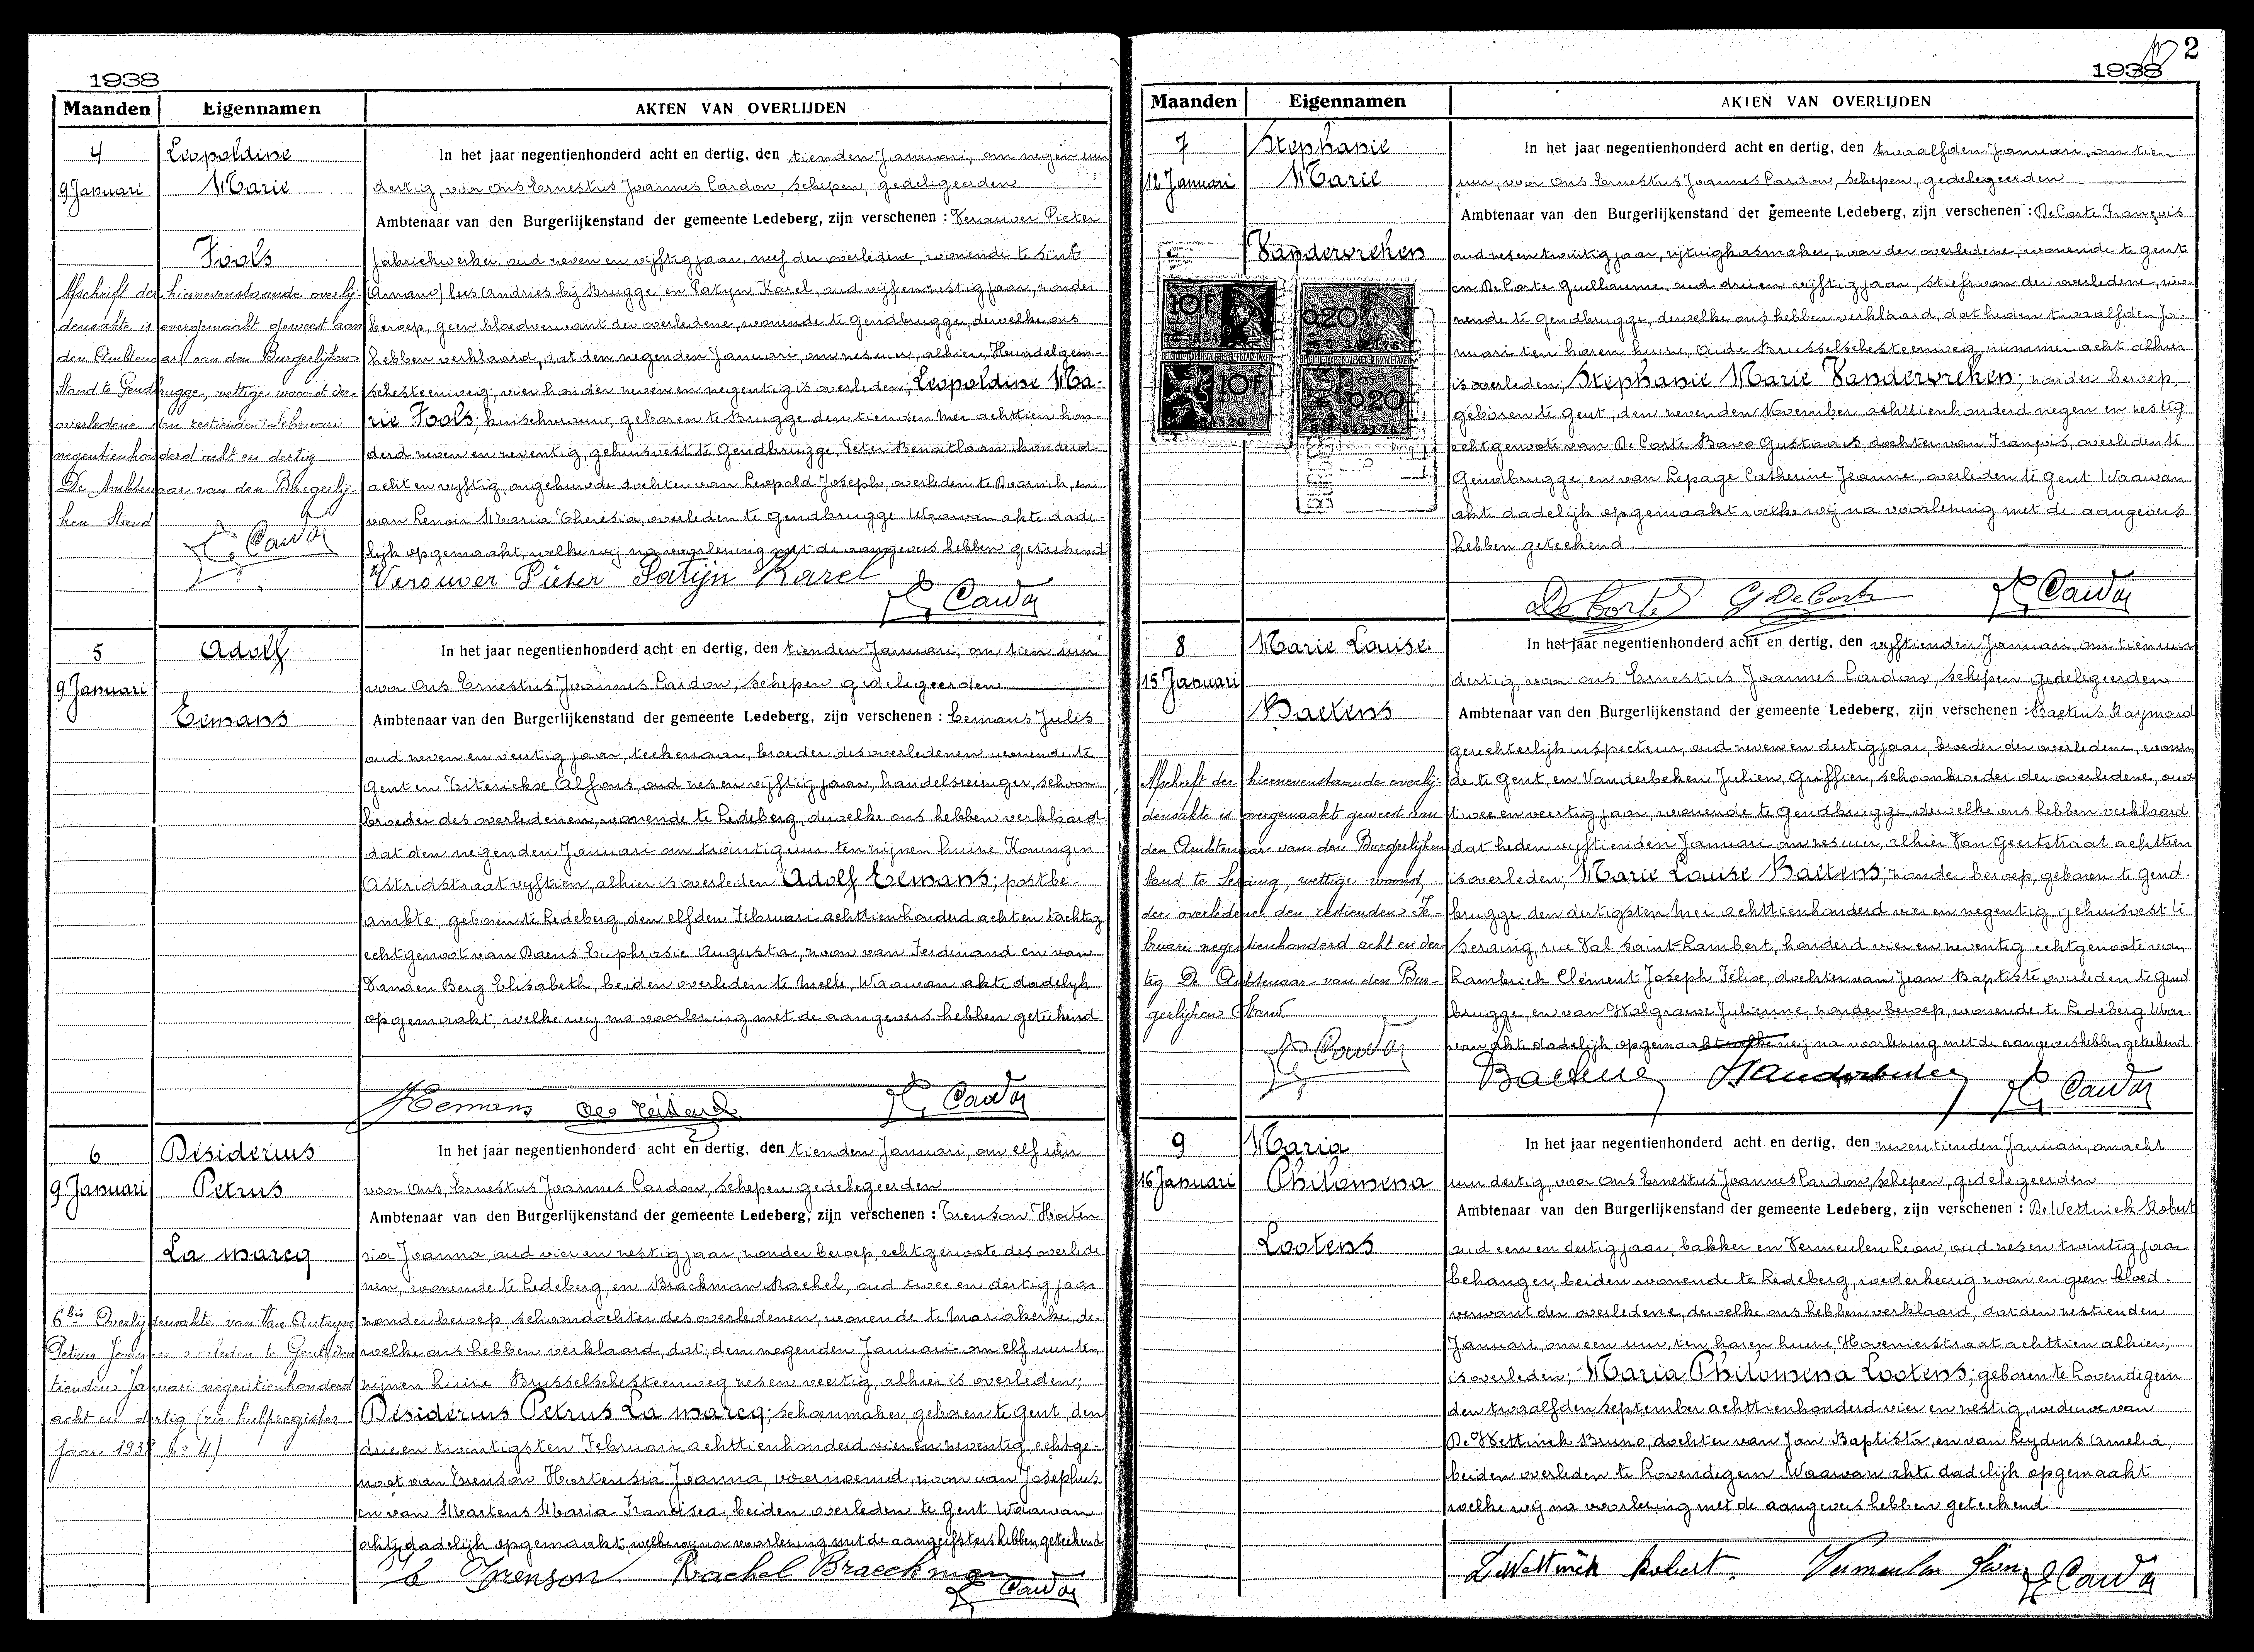 1938
Maanden Eigennamen AKTEN VAN OVERLIJDEN
4
9 Januari
Leopoldine
Marie
Fools
Afschrift der hiernevenstaande overlij-
densakte is overgemaakt geweest aan
den Ambtenaar van den Burgerlijken
Stand te Gendbrugge, wettige woonst der
overledene den zestienden Februari
negentienhonderd acht en dertig
De Ambtenaar van den Burgerlij-
ken Stand
In het jaar negentienhonderd acht en dertig, den tienden Januari, om negen uur
dertig, voor ons Ernestus Joannes Cardon, schepen, gedelegeerden
Ambtenaar van den Burgerlijkenstand der gemeente Ledeberg, zijn verschenen : Verouver Pieter
fabriekwerker, oud zeven en vijftig jaar, neef der overledene, wonende te Sint
(Amand) lees Andries bij Brugge, en Patyn Karel, oud vijf en zestig jaar, zonder
beroep, geen bloedverwant der overledene, wonende te Gendbrugge, dewelke ons
hebben verklaard, dat den negenden Januari, om zes uur, alhier, Hundelgem-
schesteenweg, vier honder zeven en negentig is overleden; Leopoldine Ma-
rie Fools; huischvrouw, geboren te Brugge den tienden Mei achttien hon-
derd zeven en zeventig, gehuisvest te Gendbrugge, Peter Benoitlaan honderd
acht en vijftig, ongehuwde dochter van Leopold Joseph, overleden te Doornik, en
van Lenoir Maria Theresia, overleden te Gendbrugge. Waarvan akte dade-
lijk opgemaakt, welke wij na voorlezing met de aangevers hebben geteekend
Verouver Pieter Patijn Karel
E. Cardon
5
9 Januari
Adolf
Eemans
In het jaar negentienhonderd acht en dertig, den tienden Januari, om tien uur
voor ons Ernestus Joannes Cardon, schepen gedelegeerden
Ambtenaar van den Burgerlijkenstand der gemeente Ledeberg, zijn verschenen : Eemans Jules
oud zeven en veertig jaar, teekenaar, broeder des overledenen wonende te
Gent en Alfons, oud zes en vijftig jaar, handelsreiziger, schoon-
broeder des overledenen, wonende te Ledeberg, dewelke ons hebben verklaard
dat den negenden Januari om twintig uur ten zijnen huize Koningin
Astridstraat vijftien, alhier is overleden Adolf Eemans; postbe-
ambte, geboren te Ledeberg, den elfden Februari achttienhonderd acht en tachtig
echtgenoot van Daens Euphrasie Augusta, zoon van Ferdinand en van
Vanden Berg Elisabeth, beiden overleden te Melle, Waarvan akte dadelijk
opgemaakt, welke wij na voorlezing met de aangevers hebben geteekend
Eemans
E. Cardon
6
9 Januari
Désidérius
Petrus
La marcq
6bis Overlijdensakte van Van Autryve
Petrus overleden te Gent den
tienden Januari negentienhonderd
acht en dertig (zie hulpregister
jaar 1938 No 4)
In het jaar negentienhonderd acht en dertig, den tienden Januari, om elf uur
voor ons, Ernestus Joannes Cardon, schepen gedelegeerden
Ambtenaar van den Burgerlijkenstand der gemeente Ledeberg, zijn verschenen : Trenson Horten
sia Joanna, oud vier en zestig jaar, zonder beroep, echtgenoote des overlede
nen, wonende te Ledeberg, en Braekman Rachel, oud twee en dertig jaar
zonder beroep, schoondochter des overledenen, wonende te Mariakerke, de-
welke ons hebben verklaard, dat, den negenden Januari om elf uur ten
zijnen huize Brusselschesteenweg zes en veertig, alhier is overleden;
Désidérius Petrus La marcq; schoenmaker, geboren te Gent, den
drie en twintigsten Februari achttienhonderd vier en zeventig, echtge-
noot van Trenson Hortensia Joanna, voornoemd, zoon van Josephus
en van Martens Maria Francisca, beiden overleden te Gent Waarvan
akte dadelijk opgemaakt, welke wij na voorlezing met de aangeefsters hebben geteekend
Trenson Rachel Braeckman
E. Cardon
2
1938
Maanden Eigennamen AKTEN VAN OVERLIJDEN
7
12 Januari
Stephanie
Marie
Vanderoreken
10F
0.20
10F
0.20
In het jaar negentienhonderd acht en dertig, den twaalfden Januari, om tien
uur, voor ons Ernestus Joannes Cardon, schepen, gedelegeerden
Ambtenaar van den Burgerlijkenstand der gemeente Ledeberg, zijn verschenen : De Corte François
oud zes en twintig jaar, rijtuigkasmaker, zoon der overledene, wonende te Gent
en De Corte Guillaume, oud drie en vijftig jaar, stiefzoon der overledene, wo-
nende te Gendbrugge, dewelke ons hebben verklaard, dat heden twaalfden Ja-
nuari ten haren huize, Oude Brusselschesteenweg, nummer acht alhier
is overleden; Stephanie Marie Vanderoreken; zonder beroep,
geboren te Gent, den zevenden November achttienhonderd negen en zestig
echtgenoote van De Corte Bavo Gustavus, dochter van François, overleden te
Gendbrugge, en van Lepage Catherine Jeanne, overleden te Gent Waarvan
akte dadelijk opgemaakt welke wij na voorlezing met de aangevers
hebben geteekend
De Corte G De Corte E. Cardon
8
15 Januari
Marie Louise
Baetens
Afschrift der hiernevenstaande overlij-
densakte is overgemaakt geweest aan
den Ambtenaar van den Burgerlijken
Stand te Seraing, wettige woonst
der overledene den zestienden Fe-
bruari negentienhonderd acht en der-
tig De Ambtenaar van den Bur-
gerlijken Stand
E. Cardon
In het jaar negentienhonderd acht en dertig, den vijftienden Januari, om tien uur
dertig, voor ons Ernestus Joannes Cardon, schepen gedelegeerden
Ambtenaar van den Burgerlijkenstand der gemeente Ledeberg, zijn verschenen : Baetens Raymond
gerechterlijk inspecteur, oud zeven en dertig jaar, broeder der overledene, wonen
de te Gent, en Vanderbeken Julien, Griffier, schoonbroeder der overledene, oud
twee en veertig jaar, wonende te Gendbrugge, dewelke ons hebben verklaard
dat heden vijftienden Januari om zes uur, alhier Van Geertstraat achttien
is overleden; Marie Louise Baetens; zonder beroep, geboren te Gend-
brugge den dertigsten Mei achttienhonderd vier en negentig, gehuisvest te
Seraing, rue Val Saint-Lambert, honderd vier en zeventig echtgenoote van
Lambrich Clément Joseph Félix, dochter van Jean Baptiste overleden te Gend
brugge, en van Walgrave Julienne, zonder beroep, wonende te Ledeberg Waar
van akte dadelijk opgemaakt welke wij na voorlezing met de aangevers hebben geteekend
Baetens Vanderbeken E. Cardon
9
16 Januari
Maria
Philomena
Lootens
In het jaar negentienhonderd acht en dertig, den zeventienden Januari, om acht
uur dertig, voor ons Ernestus Joannes Cardon, schepen, gedelegeerden
Ambtenaar van den Burgerlijkenstand der gemeente Ledeberg, zijn verschenen : De Wettinck Robert
oud een en dertig jaar, bakker en Vermeulen Leon, oud zes en twintig jaar
behanger, beiden wonende te Ledeberg, wederkeerig zoon en geen bloed-
verwant der overledene, dewelke ons hebben verklaard, dat den zestienden
Januari, om een uur, ten haren huize, Hovenierstraat achttien alhier,
is overleden; Maria Philomena Lootens; geboren te Lovendegem
den twaalfden September achttienhonderd vier en zestig, weduwe van
De Wettinck Bruno, dochter van Jan Baptista, en van Leydens Amelia,
beiden overleden te Lovendegem. Waarvan akte dadelijk opgemaakt
welke wij na voorlezing met de aangevers hebben geteekend
DeWettinck Robert. Vermeulen Leon E. Cardon